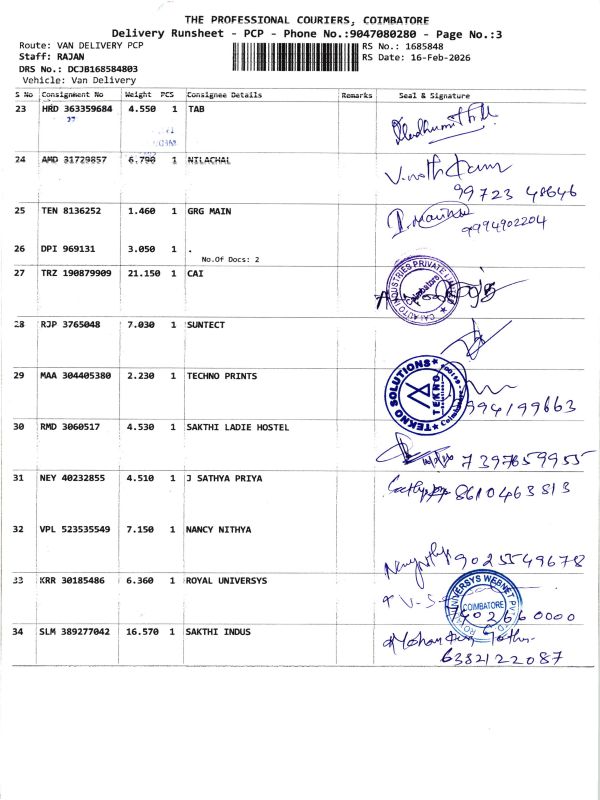 THE PROFESSIONAL COURIERS, COIMBATORE
Delivery Runsheet - PCP - Phone No.:9047080280 - Page No.:3
Route: VAN DELIVERY PCP
Staff: RAJAN
DRS No.: DCJB168584803
Vehicle: Van Delivery
RS No.: 1685848
RS Date: 16-Feb-2026
S No Consignment No Weight PCS Consignee Details Remarks Seal & Signature
23 HRD 363359684 4.550 1 TAB
24 AMD 31729857 6.790 1 NILACHAL
99723 48646
25 TEN 8136252 1.460 1 GRG MAIN
9994902204
26 DPI 969131 3.050 1 .
No.Of Docs: 2
27 TRZ 190879909 21.150 1 CAI
28 RJP 3765048 7.030 1 SUNTECT
29 MAA 304405380 2.230 1 TECHNO PRINTS
TEKNO SOLUTIONS
TEKNO
30 RMD 3060517 4.530 1 SAKTHI LADIE HOSTEL
7397659955
31 NEY 40232855 4.510 1 J SATHYA PRIYA
8610463813
32 VPL 523535549 7.150 1 NANCY NITHYA
9025549678
33 KRR 30185486 6.360 1 ROYAL UNIVERSYS
COIMBATORE
34 SLM 389277042 16.570 1 SAKTHI INDUS
6382122087